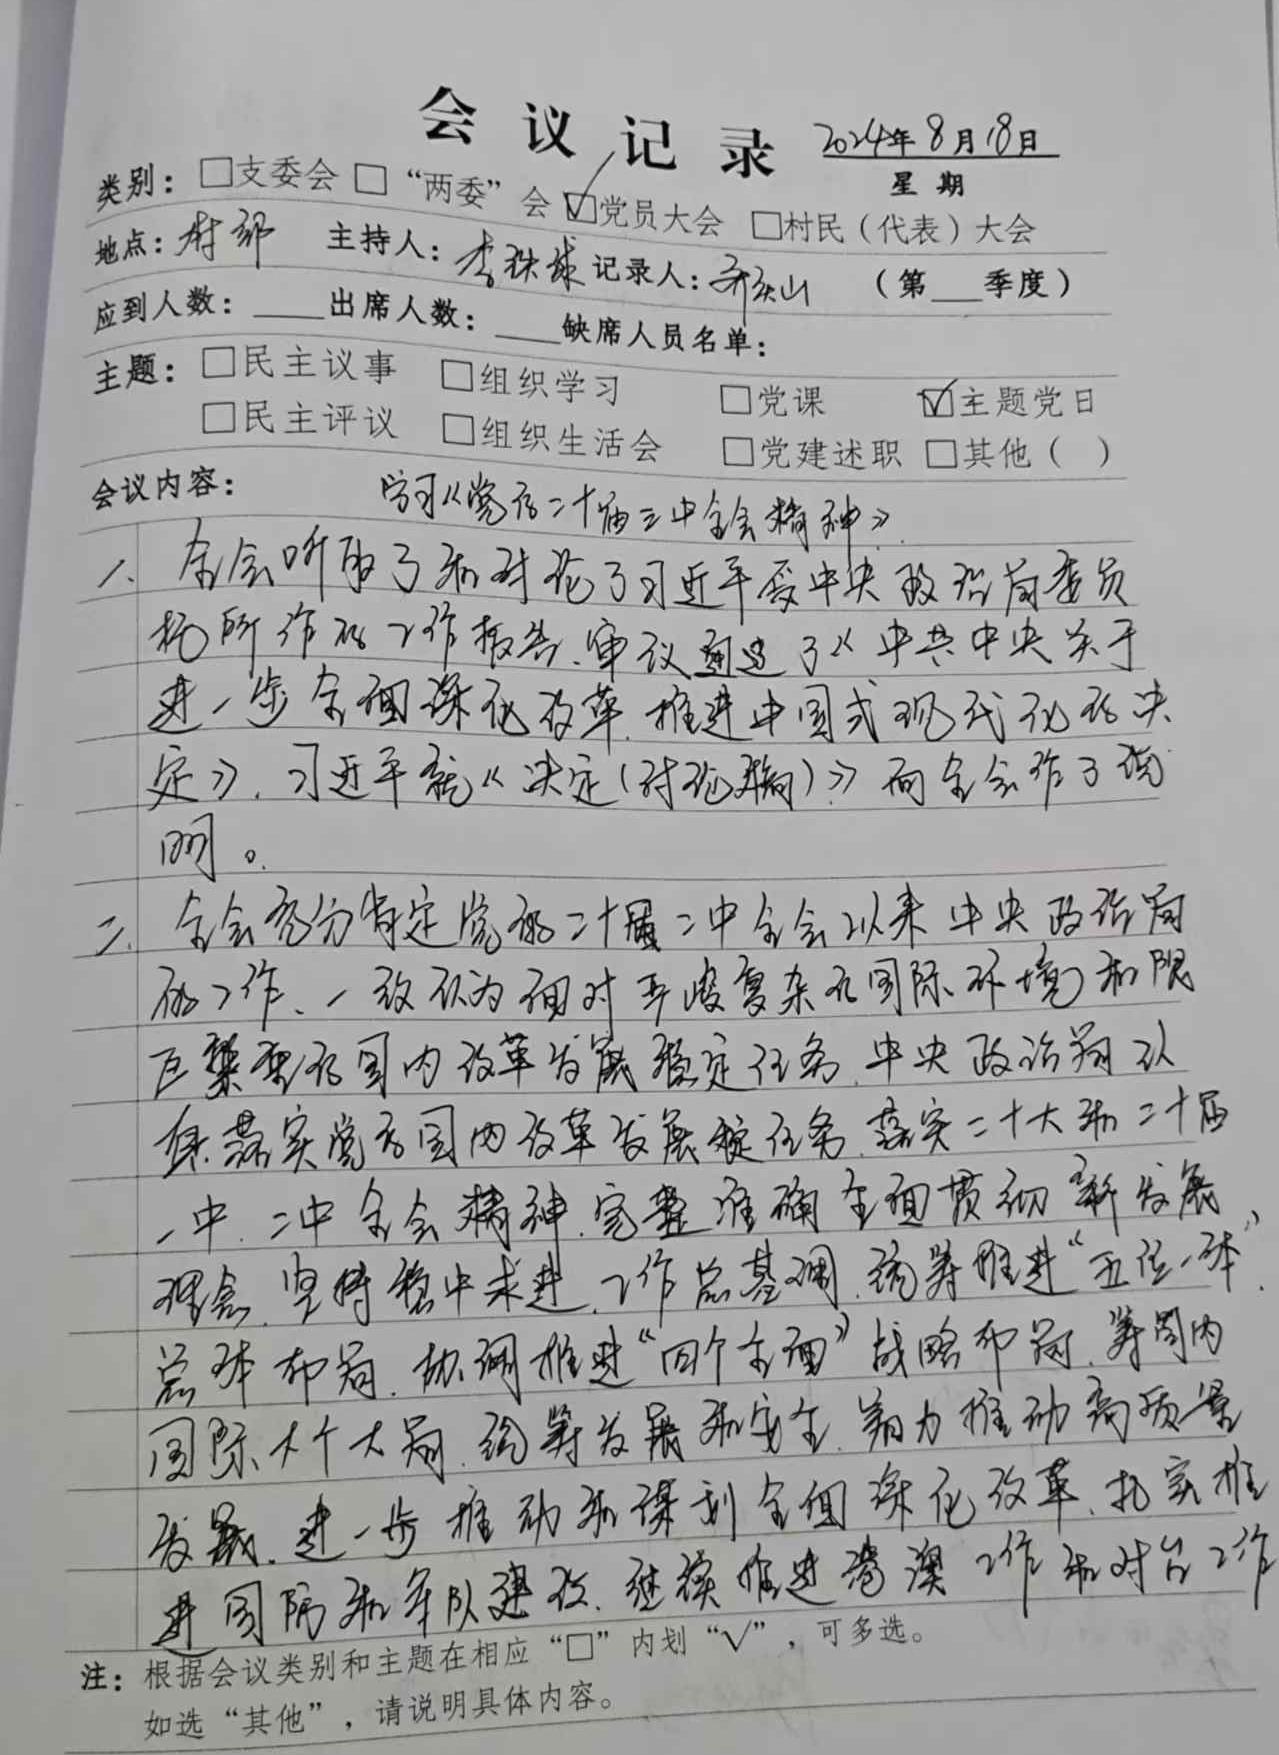 会议记录 2024年8月18日
星期
类别：□支委会 □“两委”会 ☑党员大会 □村民（代表）大会
地点：村部 主持人：李铁球 记录人：山 （第___季度）
应到人数：____出席人数：____缺席人员名单：
主题：□民主议事 □组织学习 □党课 ☑主题党日
□民主评议 □组织生活会 □党建述职 □其他（ ）
会议内容： 学习《党的二十届三中全会精神》
一、全会听取了和讨论了习近平受中央政治局委员
托所作的工作报告、审议通过了《中共中央关于
进一步全面深化改革、推进中国式现代化的决
定》，习近平就《决定（讨论稿）》向全会作了说
明。
二、全会充分肯定党的二十届二中全会以来中央政治局
的工作、一致认为面对严峻复杂的国际环境和限
巨繁重的国内改革发展稳定任务、中央政治局认
真落实党的国内改革发展稳任务、落实二十大和二十届
一中、二中全会精神、完整准确全面贯彻新发展
理念、坚持稳中求进、工作总基调、统筹推进“五位一体”
总体布局、协调推进“四个全面”战略布局、筹国内
国际个大局、统筹发展和安全、着力推动高质量
发展、进一步推动和谋划全面深化改革、扎实推
进国防和军队建设、继续推进港澳工作和对台工作
注：根据会议类别和主题在相应“□”内划“√”，可多选。
如选“其他”，请说明具体内容。